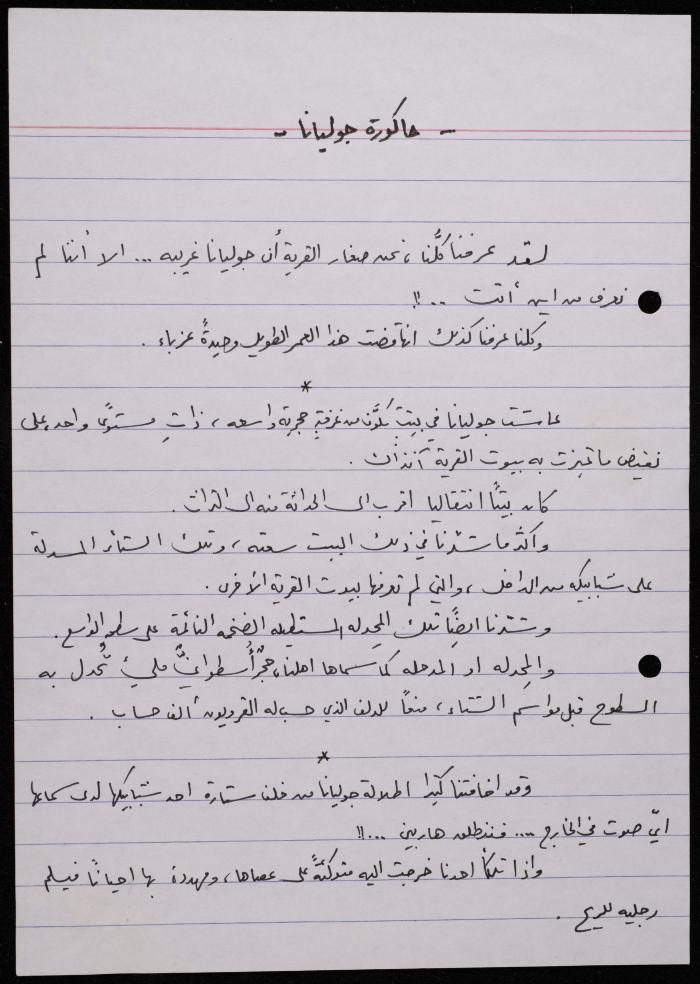 - حاكورة جوليانا -
لقد عرفنا كلُّنا، نحن صغار القرية أن جوليانا غريبه ... الا أننا لم
نعرف من اين أتت ... !!
وكلنا عرفنا كذلك انها قضت هذا العمر الطويل وحيدةً عزباء .
*
عاشت جوليانا في بيتٍ تكوَّن من غرفةٍ حجريةٍ واسعه ، ذاتِ مستوًى واحد، على
نقيض ما تميزت به بيوت القرية آنذاك .
كان بيتًا انتقاليا اقرب الى الحداثة منه الى التراث .
واكثر ما شدّنا في ذلك البيت سعته ، وتلك الستائر المسدلة
على شبابيكه من الداخل ، والتي لم تعرفها بيوت القرية الأخرى .
وشدّنا ايضًا تلك المِحدله المستطيله الضخمه النائمة على سطحه الواسع .
والمِحدله او المدحله كما سماها اهلنا، حجرٌ أسطوانيٌّ مليءٌ تُحدل به
السطوح قبل مواسم الشتاء ، منعًا للدلف الذي حسب له القرويون ألف حساب .
*
وقد اخافتنا كثيرا اطلالة جوليانا من خلف ستارة احد شبابيكها لدى سماعها
ايّ صوت في الخارج .... فننطلق هاربين ...!!
واذا تلكأ احدنا خرجت اليه متوكئةً على عصاها ، ومهددة بها احيانًا فيسلم
رجليه للريح .